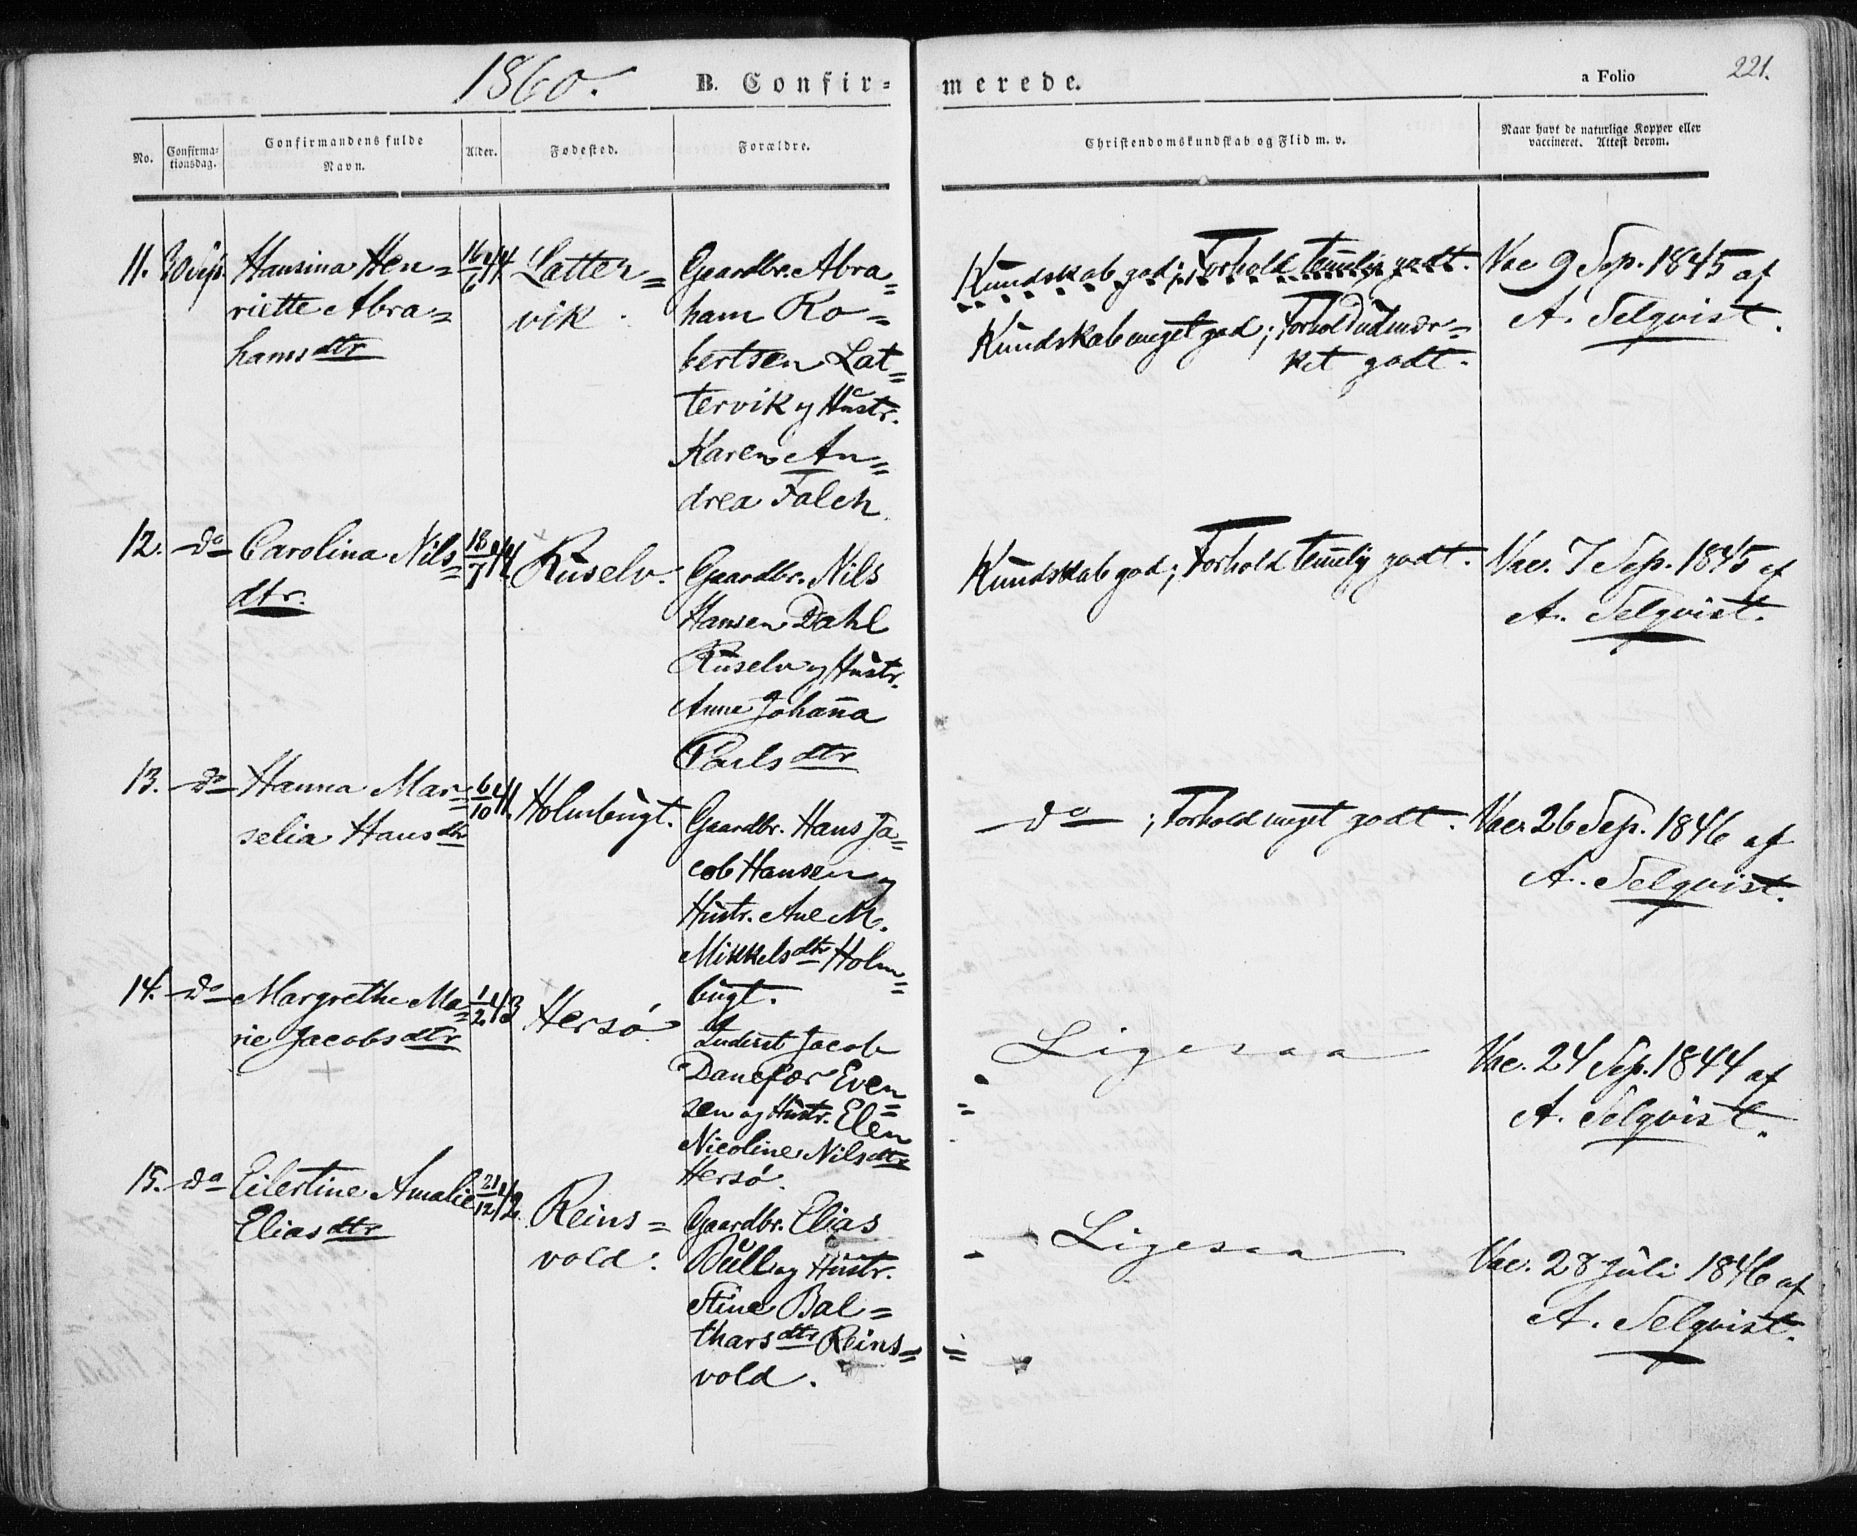 1860.
B. Confir-
merede.
a Folio
221.
No.
Confirma-
tionsdag.
Confirmandens fulde
Navn.
Alder.
Fødested.
Forældre.
Christendomskundskab og Flid m. v.
Naar havt de naturlige Kopper eller
vaccineret. Attest derom.
11. 30 Sep.
Hansina Hen=
riette Abra=
hamsdtr
16/6 44
Latter=
vik.
Gaardbr. Abra=
ham Ro=
bertsen Lat=
tervik og Hustr.
Karen An=
drea Falch
Kundskab god; Forhold temelig godt.
Kundskab meget god; Forhold udmær=
ket godt.
Vac 9 Sep. 1845 af
A. Selqvist.
12. do
Carolina Nils=
dtr.
18/7 44
Ruselv.
Gaardbr. Nils
Hansen Dahl
Ruselv og Hustr.
Anne Johan̄a
Paulsdtr
Kundskab god; Forhold temelig godt.
Vac. 7 Sep. 1845 af
A. Selqvist.
13. do
Hanna Mar=
selia Hansdtr
6/10 44.
Holmbugt.
Gaardbr. Hans Ja=
cob Hansen og
Hustr. Ane M.
Mikkelsdtr Holm=
bugt.
do ; Forhold meget godt.
Vac. 26 Sep. 1846 af
A. Selqvist.
14. do
Margrethe Ma=
rie Jacobsdtr
1/2 43
Hersø.
Inderst Jacob
Danefær Even=
sen og Hustr. Elen
Nicoline Nilsdtr
Hersø.
Ligesaa
Vac. 24 Sep. 1844 af
A. Selqvist.
15. do
Eilertine Amalie
Eliasdtr
21/12 42.
Reins=
vold.
Gaardbr. Elias
Bull og Hustr.
Stine Bal=
tharsdtr Reins=
vold.
Ligesaa
Vac. 28 Juli 1846 af
A. Selqvist.